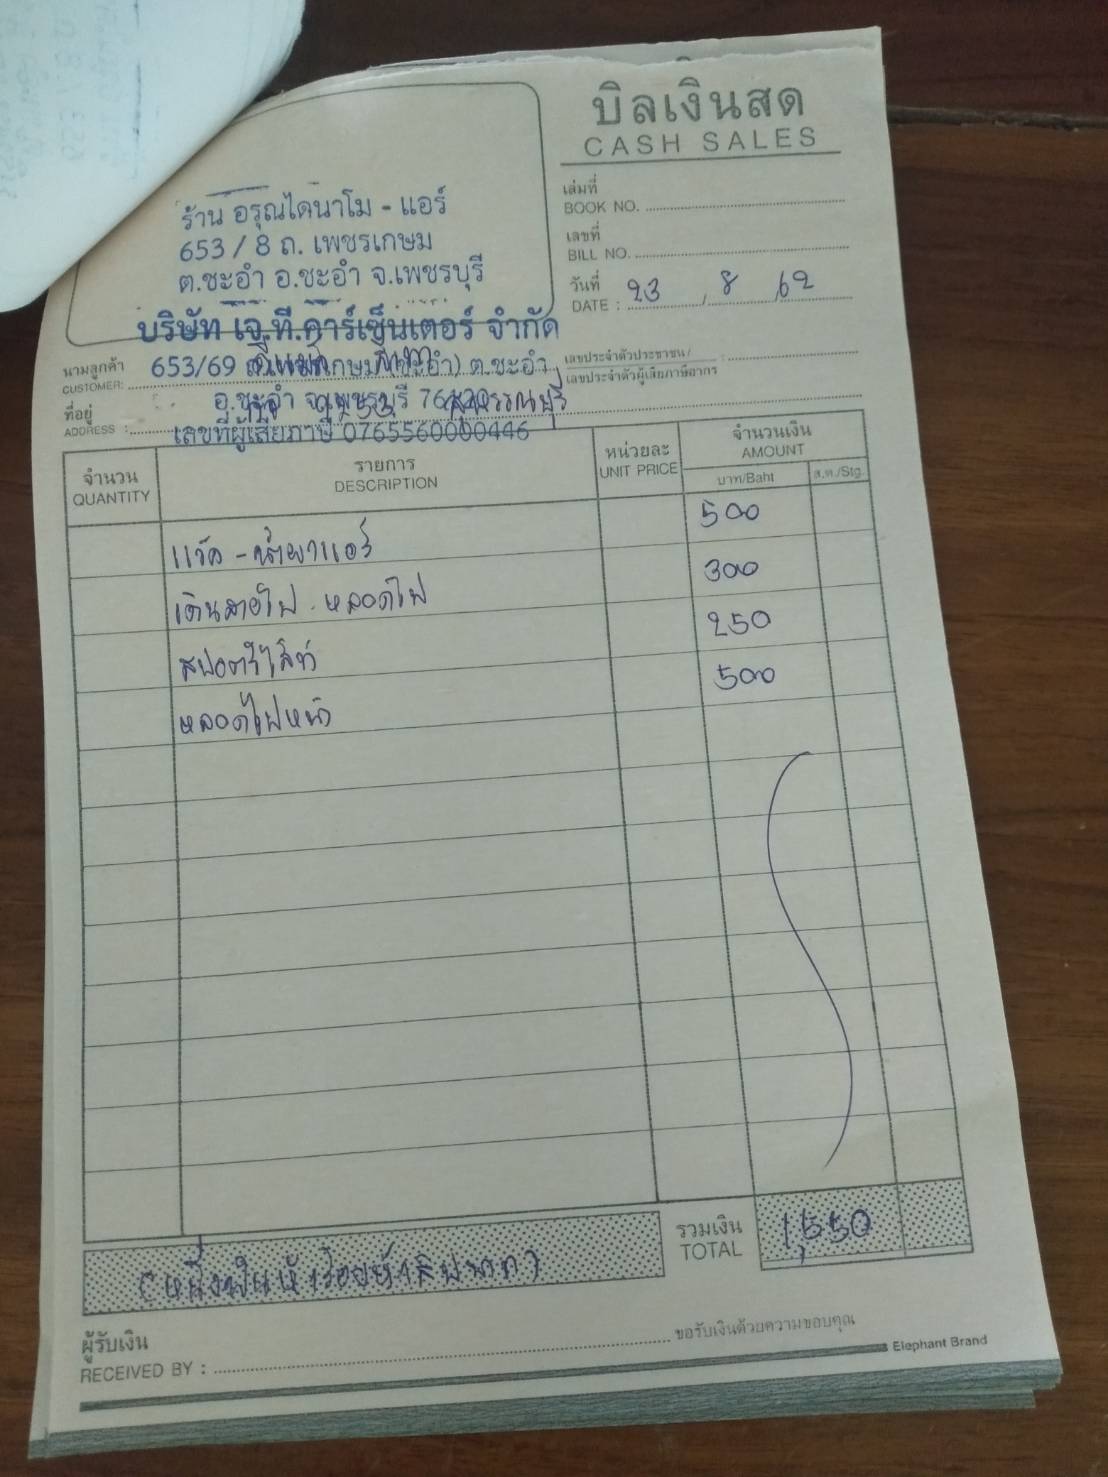 บิลเงินสด
CASH SALES
ร้าน อรุณไดนาโม - แอร์
653 / 8 ถ. เพชรเกษม
ต.ชะอำ อ.ชะอำ จ.เพชรบุรี
เล่มที่
BOOK NO.
เลขที่
BILL NO.
วันที่
DATE : 23 / 8 / 62
บริษัท เจ.ที.คาร์เซ็นเตอร์ จำกัด
นามลูกค้า
CUSTOMER:
653/69 ถ.เพชรเกษม (ชะอำ) ต.ชะอำ
เลขประจำตัวประชาชน/ :
เลขประจำตัวผู้เสียภาษีอากร
ที่อยู่
ADDRESS :
อ.ชะอำ จ.เพชรบุรี 76120
สุพรรณบุรี
เลขที่ผู้เสียภาษี 0765560000446
จำนวน
QUANTITY
รายการ
DESCRIPTION
หน่วยละ
UNIT PRICE
จำนวนเงิน
AMOUNT
บาท/Baht
ส.ต./Stg.
แว็ค - น้ำยาแอร์ 500
เดินสายไฟ . หลอดไฟ 300
สปอตร์ไล้ท์ 250
หลอดไฟหน้า 500
รวมเงิน
TOTAL
1,550
(หนึ่งพันห้าร้อยห้าสิบบาท)
ผู้รับเงิน
RECEIVED BY :
ขอรับเงินด้วยความขอบคุณ
Elephant Brand